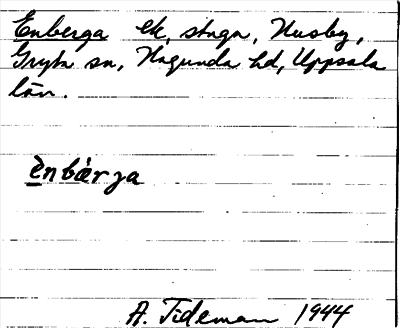 Enberga lk, stuga, Husby,
Gryta sn, Hagunda hd, Uppsala
län.
ènbærga
A. Tideman 1944